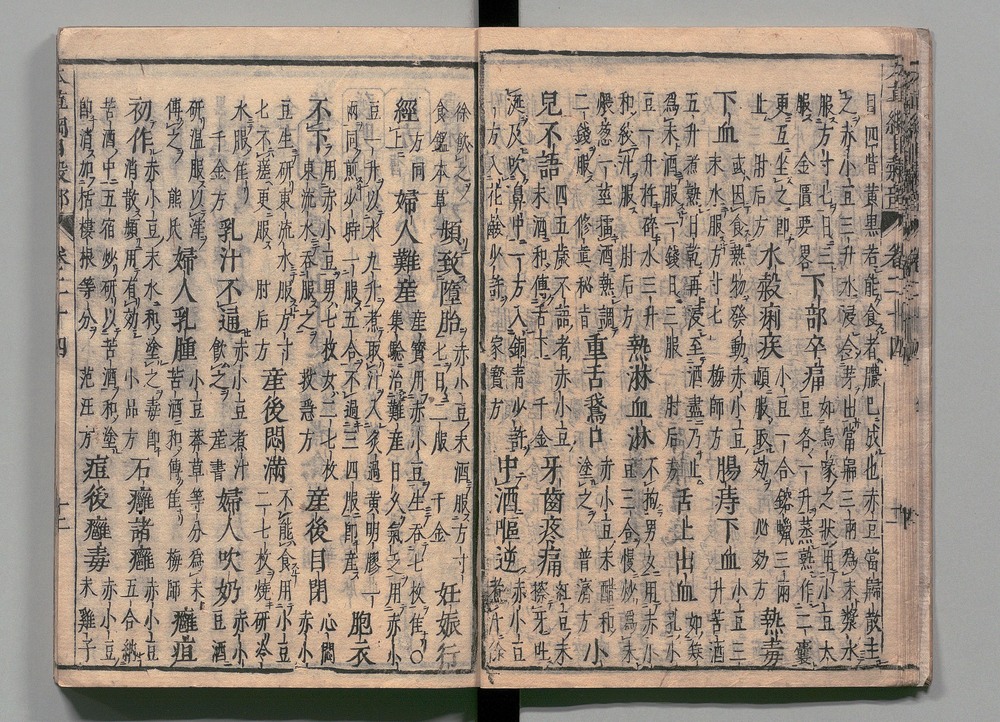 目四眥黃黑若能食者膿已成也赤豆當歸散主
之赤小豆三升水浸令芽出當歸三兩為末漿水
服方寸匕日三服 金匱要畧 下部卒痛 如鳥啄之狀用小豆大豆各一升蒸熟作二囊
更互坐之即止 肘后方 水穀痢疾 小豆一合鎔蠟三兩頓服取効 必効方 熱毒
下血 或因食熱物發動赤小豆末水服方寸匕 梅師方 腸痔下血 小豆三升苦酒
五升煮熟日乾再浸至酒盡乃止為末酒服一錢日三服 肘后方 舌上出血 如簪孔小
豆一升杵碎水三升和絞汁服 肘后方 熱淋血淋 不拘男女用赤小豆三合慢炒為末
煨葱一莖擂酒熱調二錢服 修真秘旨 重舌鵞口 赤小豆末醋和塗之 普濟方 小
兒不語 四五歲不語者赤小豆末酒和傅舌下 千金 牙齒疼痛 紅豆末擦牙吐
涎及吹鼻中一方入銅青少許一方入花鹼少許 家寳方 中酒嘔逆 赤小豆煮汁徐
徐飲之 食鑑本草 頻致墮胎 赤小豆末酒服方寸匕日二服 千金 妊娠行
經 方同上 婦人難産 産寳用赤小豆生吞七枚佳○集驗治難産日久氣乏用赤小
豆一升以水九升煮取汁入炙過黃明膠一兩同煎少時一服五合不過三四服即産 胞衣
不下 用赤小豆男七枚女二七枚東流水吞服之 救急方 産後目閉 心悶赤小
豆生研東流水服方寸匕不瘥更服 肘后方 産後悶滿 不能食用小豆二七枚燒研冷
水服佳 千金方 乳汁不通 赤小豆煮汁飲之 産書 婦人吹奶 赤小豆酒
研溫服以滓傅之 熊氏 婦人乳腫 小豆莽草等分為末苦酒和傅佳 梅師 癰疽
初作 赤小豆末水和塗之毒即消散頻用有効 小品方 石癰諸癰 赤小豆五合納
苦酒中五宿炒研以苦酒和塗即消加括樓根等分 范汪方 痘後癰毒 赤小豆末雞子